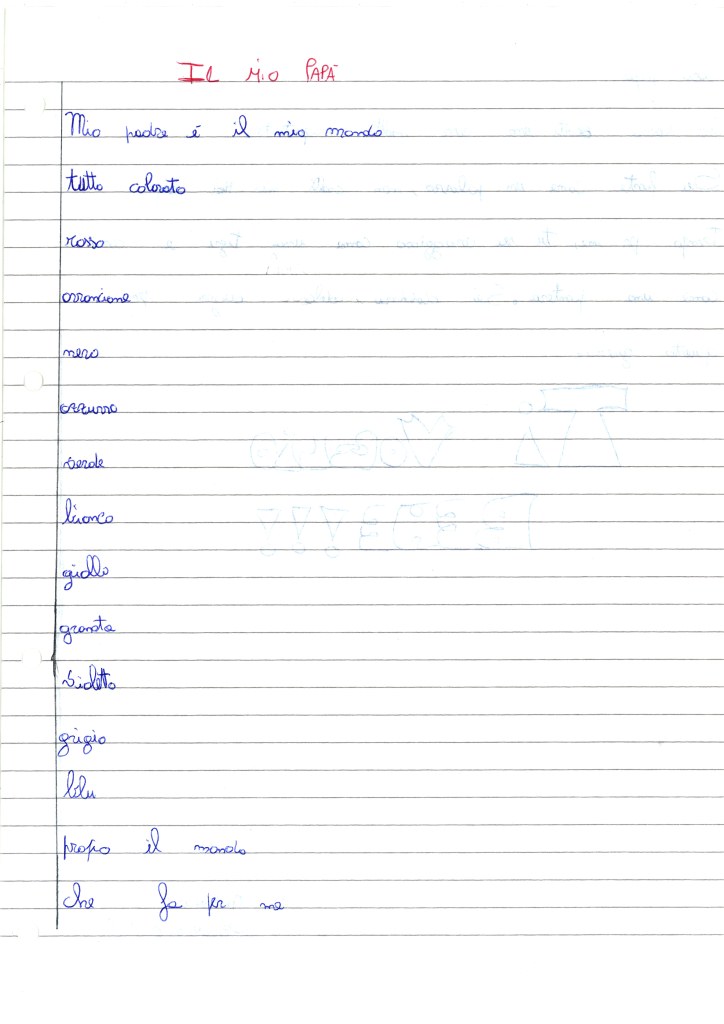 Il mio PAPÀ
Mio padre é il mio mondo
tutto colorato
rosso
arrancione
nero
azzurro
verde
bianco
giallo
granata
violetto
grigio
blu
propo il mondo
che fa per me